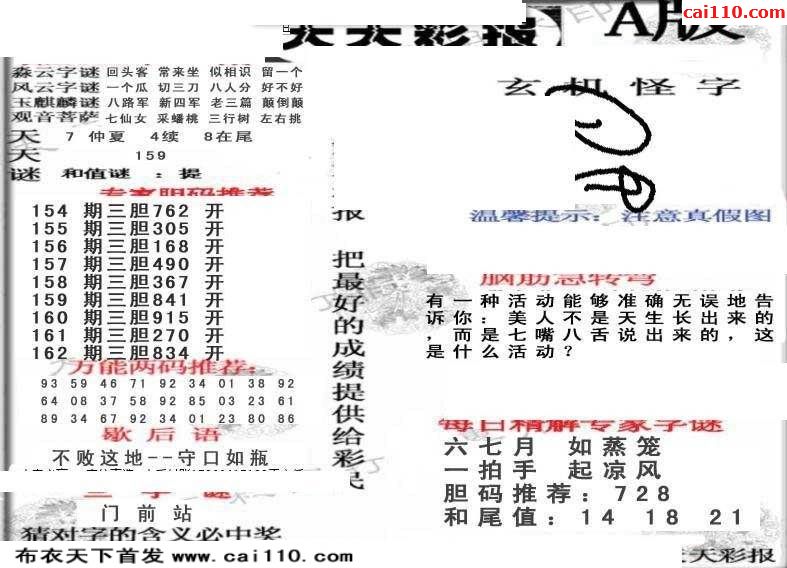 天天彩报 A版
cai110.com
淼云字谜 回头客 常来坐 似相识 留一个
风云字谜 一个瓜 切三刀 八人分 好不好
玉麒麟谜 八路军 新四军 老三篇 颠倒颠
观音菩萨 七仙女 采蟠桃 三行树 左右挑
天 7 仲夏 4续 8在尾
天 159
谜 和值谜 : 提
专家胆码推荐
154 期三胆762 开
155 期三胆305 开
156 期三胆168 开
157 期三胆490 开
158 期三胆367 开
159 期三胆841 开
160 期三胆915 开
161 期三胆270 开
162 期三胆834 开
万能两码推荐:
93 59 46 71 92 34 01 38 92
64 08 37 58 92 85 03 23 61
89 34 67 92 34 01 23 80 86
歇后语
不败这地--守口如瓶
三字谜
门前站
猜对字的含义必中奖
布衣天下首发 www.cai110.com
报 把最好的成绩提供给彩民
玄机怪字
温馨提示: 注意真假图
脑筋急转弯
有一种活动能够准确无误地告
诉你: 美人不是天生长出来的
, 而是七嘴八舌说出来的, 这
是什么活动?
每日精解专家字谜
六七月 如蒸笼
一拍手 起凉风
胆码推荐: 728
和尾值: 14 18 21
天天彩报